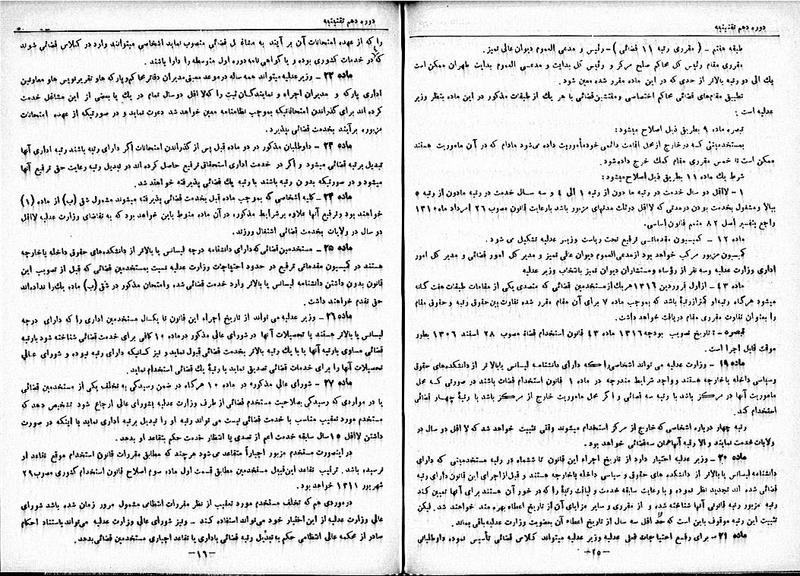 دوره دهم تقنینیه
طبقه هفتم - (مقرری رتبه ۱۱ قضائی) - رئیس و مدعی العموم دیوان عالی تمیز.
مقرری مقام رئیس کل محاکم صلح مرکز و رئیس کل بدایت و مدعی العموم بدایت طهران ممکن است
یک الی دو رتبه بالاتر از حدی که در این ماده مقرر شده معین شود.
تطبیق مقام‌های قضائی محاکم اختصاصی و مفتشین قضائی با هر یک از طبقات مذکور در این ماده بنظر وزیر
عدلیه است:
تبصره ماده ۹ بطریق ذیل اصلاح میشود:
بمستخدمینی که در خارج از محل اقامت دائمی خود مأموریت داده میشود مادام که در آن مأموریت هستند
ممکن است تا خمس مقرری مقام کمک خرج داده شود.
شرط یک ماده ۱۱ بطریق ذیل اصلاح میشود:
۱ - لااقل دو سال خدمت در رتبه ما دون از رتبه ۱ الی ۴ و سه سال خدمت در رتبه مادون از رتبه ۵
ببالا و مشغول خدمت بودن در مدتی که لااقل دو ثلث مدتهای مزبور باشد بارعایت قانون مصوب ۲۶ مرداد ماه ۱۳۱۰
راجع بتفسیر اصل ۸۲ متمم قانون اساسی.
ماده ۱۲ - کمیسیون مقدماتی ترفیع تحت ریاست وزیر عدلیه تشکیل می شود.
کمیسیون مزبور مرکب خواهد بود از مدعی العموم دیوان عالی تمیز و مدیر کل امور قضائی و مدیر کل امور
اداری وزارت عدلیه و سه نفر از رؤساء و مستشاران دیوان تمیز بانتخاب وزیر عدلیه
ماده ۴۳ - از اول فروردین ۱۳۱۶ هر یک از مستخدمین قضائی که متصدی یکی از مقامات طبقات هفت گانه
میشود هرگاه رتبه او کمتر از رتبهٔ باشد که بموجب ماده ۷ برای آن مقام مقرر شده تفاوت بین حقوق رتبه و حقوق مقام
را بعنوان تفاوت مقرری مقام دریافت خواهد داشت.
تبصره - تا تاریخ تصویب بودجه ۱۳۱۶ ماده ۴۳ قانون استخدام قضاة مصوب ۲۸ اسفند ۱۳۰۶ بطور
موقت قابل اجرا است.
ماده ۱۹ - وزارت عدلیه می تواند اشخاصی را که دارای دانشنامه لیسانس یا بالاتر از دانشکده‌های حقوق
وسیاسی داخله یا خارجه هستند و واجد شرایط مندرجه در ماده ۱ قانون استخدام قضات باشند در صورتی که محل
ماموریت آنها در مرکز باشد با رتبه سه قضائی و اگر محل ماموریت خارج از مرکز باشد با رتبهٔ چهار قضائی
استخدام کند.
رتبه چهار درباره اشخاصی که خارج از مرکز استخدام میشوند وقتی تثبیت خواهد شد که لااقل دو سال در
ولایات خدمت نمایند و الا رتبه آنها همان سه قضائی خواهد بود.
ماده ۲۰ - وزیر عدلیه اختیار دارد از تاریخ اجراء این قانون تا ششماه در رتبه مستخدمینی که دارای
دانشنامه لیسانس یا بالاتر از دانشکده های حقوق و سیاسی داخله یا خارجه هستند و قبل از اجرای این قانون دارای رتبه
قضائی شده اند تجدید نظر نموده و با رعایت سابقه خدمت و لیاقت رتبهٔ را که در خور آن هستند برای آنها تعیین کند
رتبه مزبور رتبه قانونی آنها شناخته شده و از مقرری و سایر مزایای آن از تاریخ اعطاء بهره مند خواهند شد. لیکن
تثبیت این رتبه موقوف باین است که لااقل سه سال از تاریخ اعطاء آن بعضویت وزارت عدلیه باقی بماند.
ماده ۲۱ - برای رفع احتیاجات قبل عدلیه وزیر عدلیه میتواند کلاس قضائی تأسیس نموده داوطلبانی
- ۲۵ -
دوره دهم تقنینیه
را که از عهده امتحانات آن بر آیند به مشاغل قضائی منصوب نماید اشخاصی میتوانند وارد در کلاس قضائی شوند
که در خدمات کشوری بوده و یا گواهی نامه دوره اول متوسطه را دارا باشند.
ماده ۲۲ - وزیر عدلیه میتواند همه ساله در موعد معین مدیران دفاتر محاکم و پارکه ها و تقریر نویس ها و معاونین
اداری پارکه و مدیران اجراء و نمایندگان ثبت را که لااقل دو سال تمام در یک یا بعضی از این مشاغل خدمت
کرده اند برای گذراندن امتحاناتیکه بموجب نظامنامه معین خواهد شد دعوت نماید و در صورتیکه از عهده امتحانات
مزبوره بر آیند بخدمت قضائی بپذیرد.
ماده ۲۳ - داوطلبان مذکور در دو ماده قبل پس از گذراندن امتحانات اگر دارای رتبه باشند رتبه اداری آنها
تبدیل برتبه قضائی میشود و اگر در خدمت اداری استحقاق ترفیع حاصل کرده اند در تبدیل رتبه رعایت حق ترفیع آنها
میشود و در صورتیکه بدون رتبه باشند با رتبه یک قضائی پذیرفته خواهند شد.
ماده ۲۴ - کلیه اشخاصی که بموجب ماده قبل بخدمت قضائی پذیرفته میشوند مشمول شق (ب) از ماده (۱)
خواهند بود و ترفیع آنها علاوه بر شرایط مذکوره در آن ماده منوط باین خواهد بود که به تقاضای وزارت عدلیه لااقل
دو سال در ولایات بخدمت قضائی اشتغال ورزند.
ماده ۲۵ - مستخدمین قضائی که دارای دانشنامه درجه لیسانس یا بالاتر از دانشکده‌های حقوق داخله یا خارجه
هستند در کمیسیون مقدماتی ترفیع در حدود احتیاجات وزارت عدلیه نسبت بمستخدمین قضائی که قبل از تصویب این
قانون بدون داشتن دانشنامه لیسانس یا بالاتر وارد خدمت قضائی شده و امتحان مذکور در شق (ب) ماده یک را نداده‌اند
حق تقدم خواهند داشت.
ماده ۲۶ - وزیر عدلیه می تواند از تاریخ اجراء این قانون تا یکسال مستخدمین اداری را که دارای درجه
لیسانس یا بالاتر هستند یا تحصیلات آنها در شورای عالی مذکور در ماده ۱۰ کافی برای خدمت قضائی شناخته شود با رتبه
قضائی مساوی با رتبه آنها و یا با یک رتبه بالاتر بخدمت قضائی قبول نماید و نیز کسانیکه دارای رتبه نبوده و شورای عالی
تحصیلات آنها را برای خدمات قضائی تصدیق نماید با رتبهٔ یک قضائی استخدام نماید.
ماده ۲۷ - شورای عالی مذکوره در ماده ۱۰ هرگاه در ضمن رسیدگی به تخلف یکی از مستخدمین قضائی
یا در مواردی که رسیدگی بصلاحیت مستخدم قضائی از طرف وزارت عدلیه بشورای عالی ارجاع شود تشخیص دهد که
مستخدم مورد تعقیب مناسب با خدمت قضائی نیست می تواند رتبه او را تبدیل برتبه اداری نماید یا اینکه در صورت
داشتن لااقل ۱۵ سال سابقه خدمت اعم از تصدی یا انتظار خدمت حکم بتقاعد او بدهد.
در اینصورت مستخدم مزبور اجباراً متقاعد می شود هر چند که مطابق مقررات قانون استخدام موقع تقاعد او
نرسیده باشد. ترتیب تقاعد این قبیل مستخدمین مطابق قسمت اول ماده سوم اصلاح قانون استخدام کشوری مصوب ۲۹
شهریور ۱۳۱۱ خواهد بود.
در موردی هم که تخلف مستخدم مورد تعقیب از نظر مقررات انتظامی مشمول مرور زمان شده باشد شورای
عالی وزارت عدلیه از این اختیار خود می‌تواند استفاده کند - و نیز شورای عالی وزارت عدلیه می‌تواند باستناد احکام
صادر از محکمه عالی انتظامی حکم به تبدیل رتبه قضائی باداری یا تقاعد اجباری مستخدمین قضائی بدهد.
- ۱۱ -